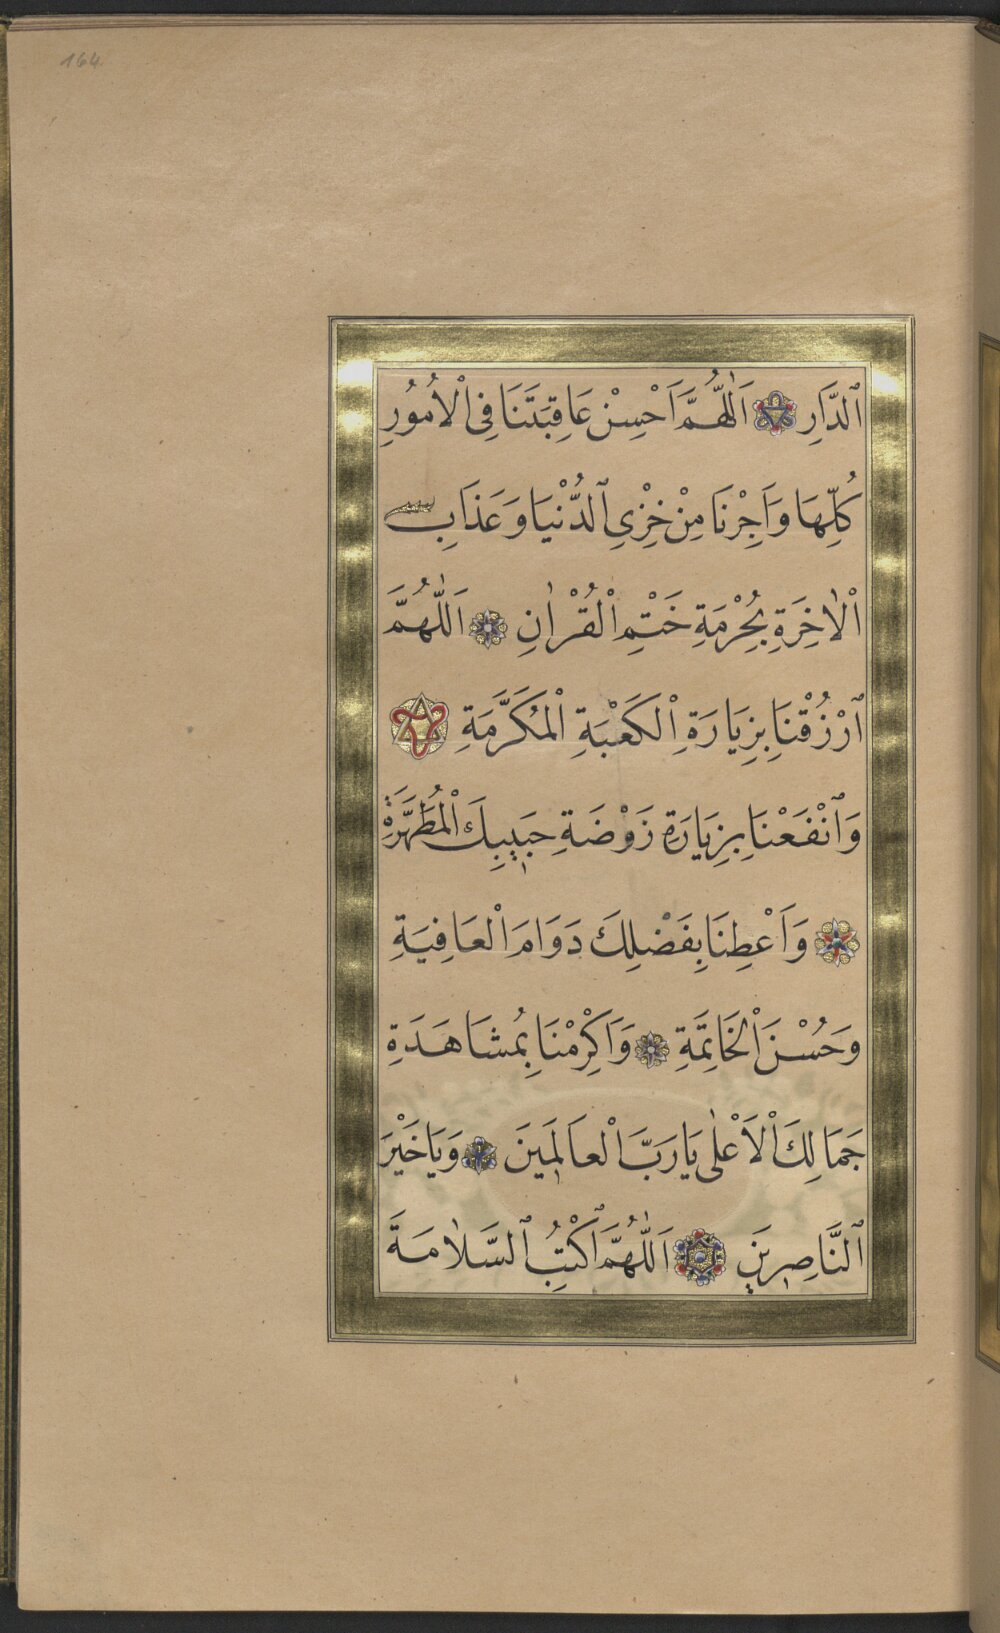 164
ٱلدَّارِ اَللّٰهُمَّ اَحْسِنْ عَاقِبَتَنَا فِى الْاُمُورِ
كُلِّهَا وَاَجِرْنَا مِنْ خِزْىِ ٱلدُّنْيَا وَعَذَابِ
الْاٰخِرَةِ بِحُرْمَةِ خَتْمِ الْقُرْاٰنِ اَللّٰهُمَّ
ٱرْزُقْنَا بِزِيَارَةِ الْكَعْبَةِ الْمُكَرَّمَةِ
وَٱنْفَعْنَا بِزِيَارَةِ رَوْضَةِ حَبِيبِكَ الْمُطَهَّرَةِ
وَاَعْطِنَا بِفَضْلِكَ دَوَامَ الْعَافِيَةِ
وَحُسْنَ الْخَاتِمَةِ وَاَكْرِمْنَا بِمُشَاهَدَةِ
جَمَالِكَ الْاَعْلٰى يَا رَبَّ الْعَالَمِينَ وَيَا خَيْرَ
ٱلنَّاصِرِينَ اَللّٰهُمَّ ٱكْتُبِ ٱلسَّلَامَةَ